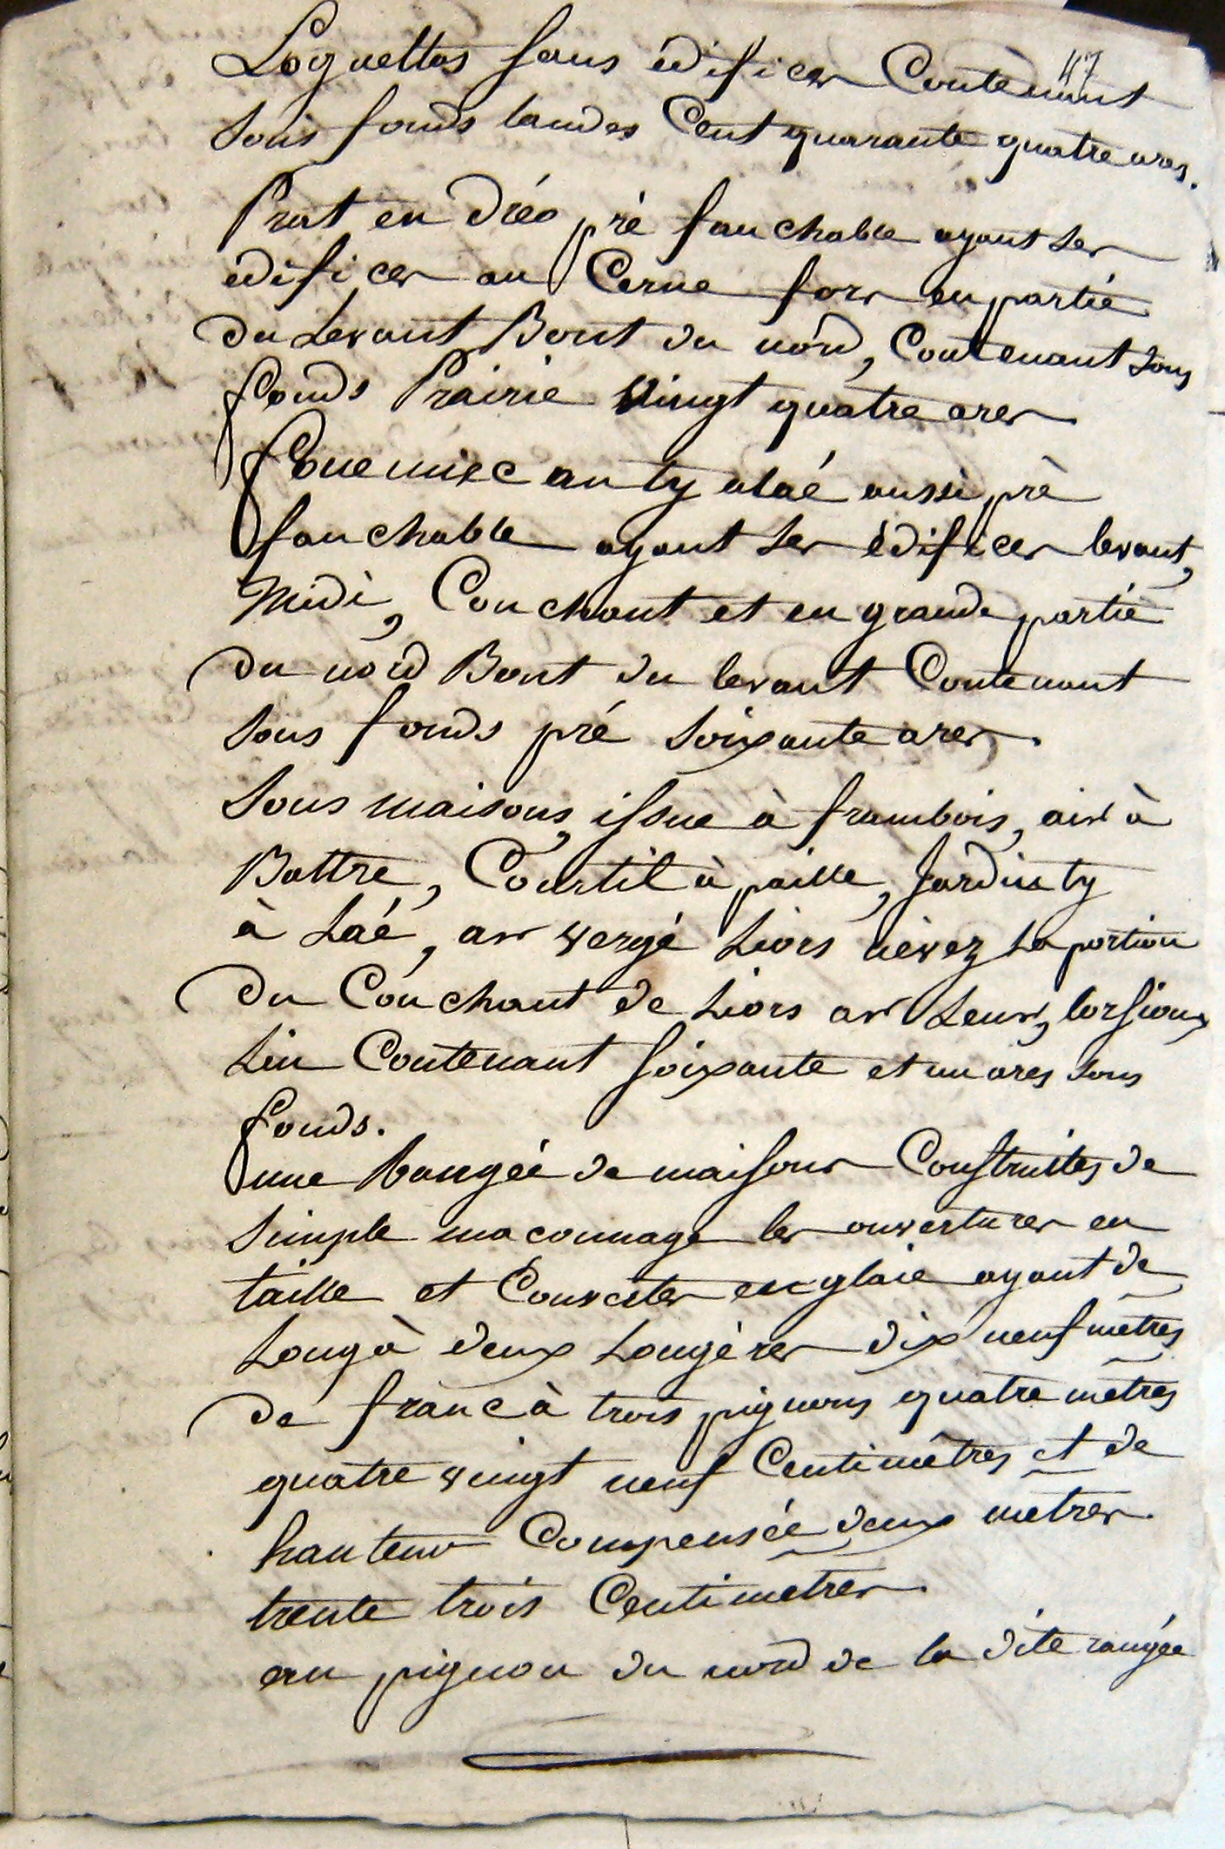 47
Loguellas sans édifices Contenant
sous fonds landes Cent quarante quatre ares.
Prat en Dréo pré fauchable ayant ses
édifices au Cerne fors en partie
du Levant Bout du nord, Contenant sous
fonds Prairie Vingt quatre ares
fouennec an ty alaé aussi pré
fauchable ayant ses édifices levant,
Midi, Couchant et en grande partie
du nord Bout du levant Contenant
sous fonds pré soixante ares.
Sous maisons, issue à frambois, air à
Battre, Courtil à paille, Jardin ty
à Laé, ar vergé Liors névez La portion
du Couchant de Liors ar Leur,
Lin Contenant soixante et un ares sous
fonds.
une Rangée de maisons Construites de
simple maconnage les ouvertures en
taille et Couvertes en glaie ayant de
Long à deux Longères dix neuf mètres
de franc à trois pignons quatre mètres
quatre vingt neuf Centimètres et de
hauteur Compensée deux mètres
trente trois Centimètres.
au pignon du nord de la dite rangée